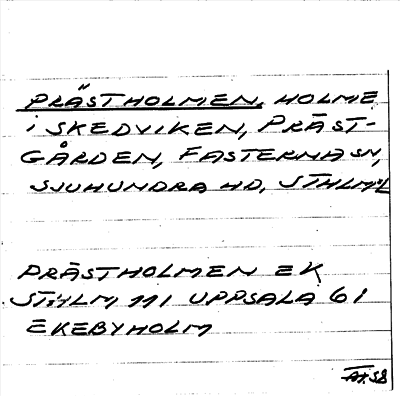 PRÄSTHOLMEN, HOLME
i SKEDVIKEN, PRÄST-
GÅRDEN, FASTERNA SN,
SJUHUNDRA HD, STHLM:L
PRÄSTHOLMEN EK
STHLM 111 UPPSALA 61
EKEBYHOLM